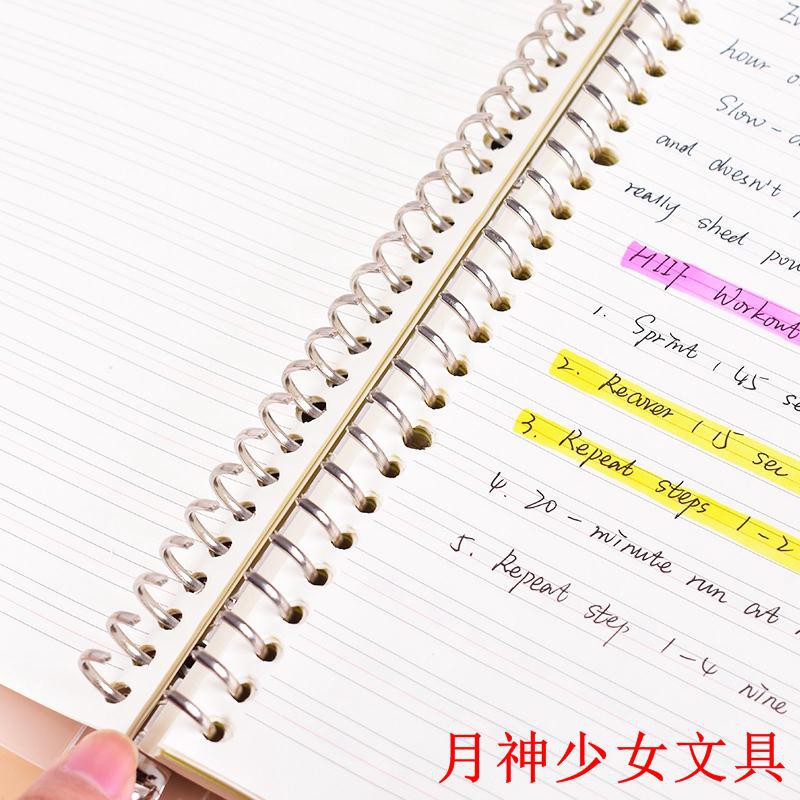 hour
Slow-
and doesn't
really shed
HIIT Workout
1. Sprint 1 45 se
2. Recover 1 15 sec
3. Repeat steps 1-2
4. 20-minute run at
5. Repeat step 1-4 nine
月神少女文具